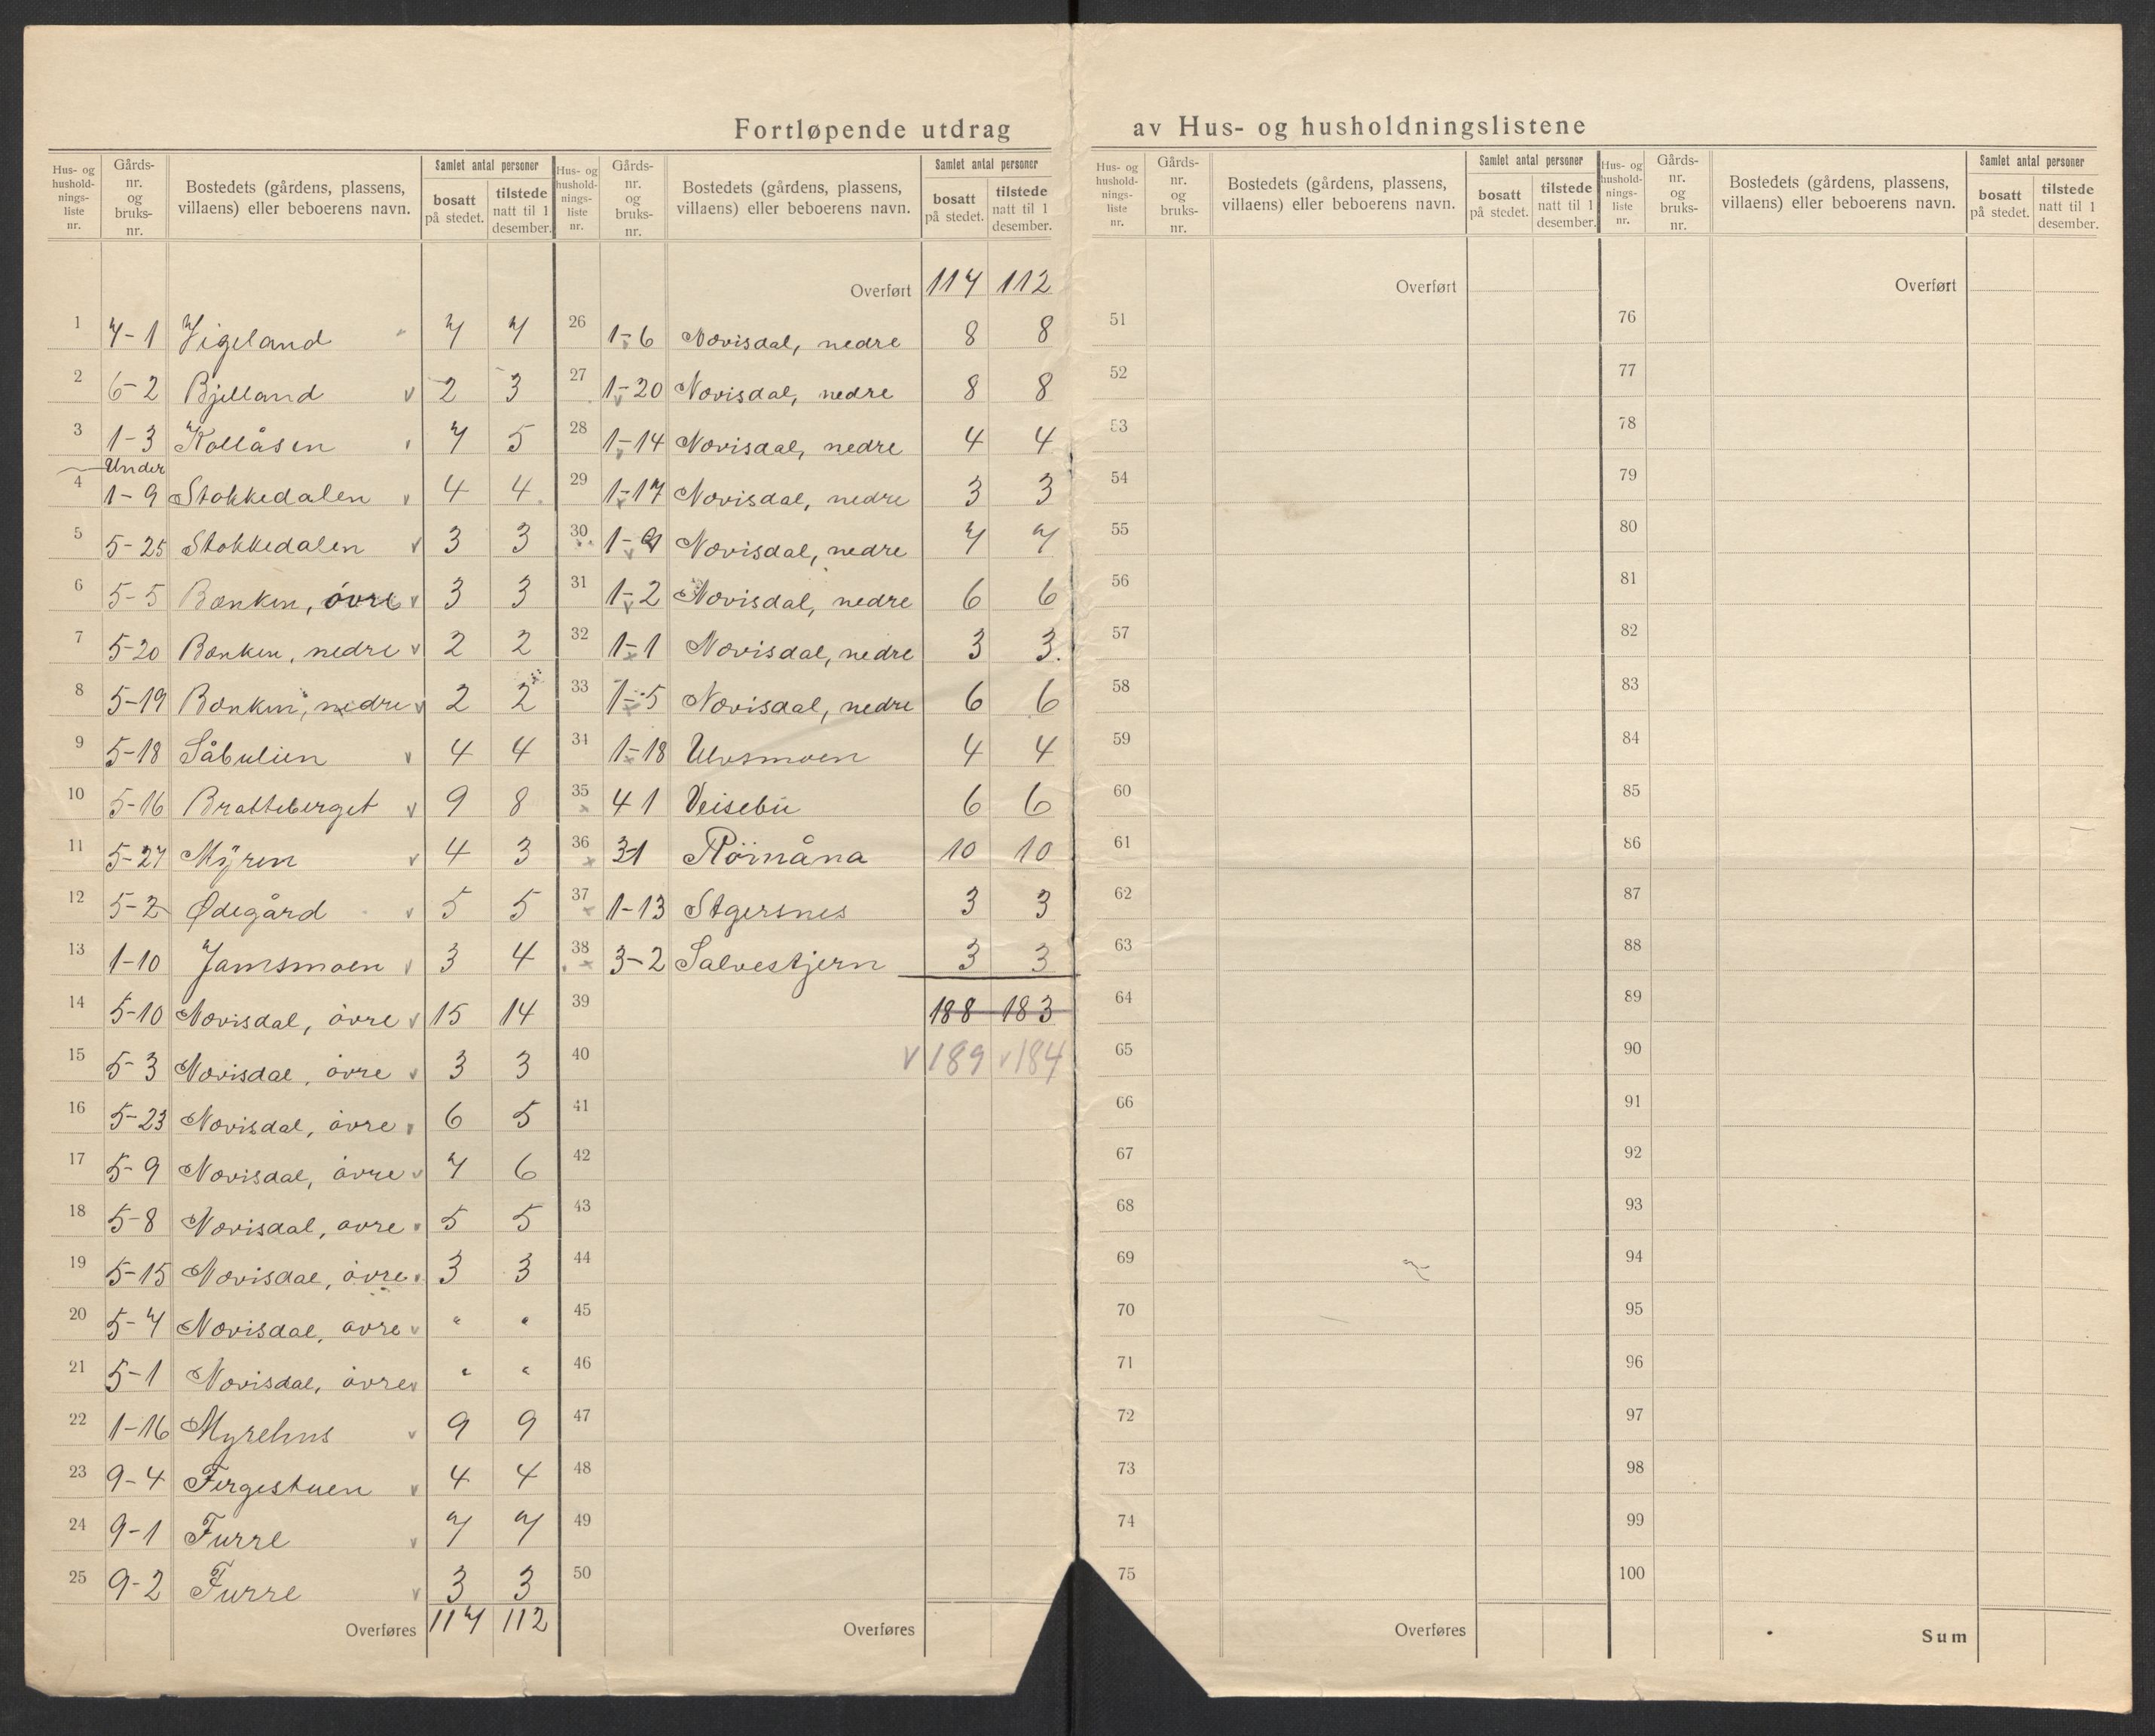 Fortløpende utdrag av Hus- og husholdningslistene
Hus- og hushold-nings-liste nr. | Gårds-nr. og bruks-nr. | Bostedets (gårdens, plassens, villaens) eller beboerens navn. | Samlet antal personer | bosatt på stedet. | tilstede natt til 1 desember.
1 4-1 Vigeland 7 7
2 6-2 Bjelland v 2 3
3 1-3 Kollåsen 7 5
Under
4 1-9 Stokkedalen v 4 4
5 5-25 Stokkedalen v 3 3
6 5-5 Bænken, övre v 3 3
7 5-20 Bænken, nedre v 2 2
8 5-19 Bænken, nedre v 2 2
9 5-18 Såbulien v 4 4
10 5-16 Bratteberget v 9 8
11 5-27 Myren v 4 3
12 5-2 Ødegård v 5 5
13 1-10 Jamsmoen v 3 4
14 5-10 Novisdal, övre v 15 14
15 5-3 Novisdal, övre v 3 3
16 5-23 Novisdal, övre v 6 5
17 5-9 Novisdal, övre v 7 6
18 5-8 Novisdal, övre v 5 5
19 5-15 Novisdal, övre v 3 3
20 5-7 Novisdal, övre v " "
21 5-1 Novisdal, övre v " "
22 1-16 Myrehus v 9 9
23 9-4 Fergestuen v 4 4
24 9-1 Furre v 7 7
25 9-2 Furre v 3 3
Overføres 117 112
Hus- og hushold-nings-liste nr. | Gårds-nr. og bruks-nr. | Bostedets (gårdens, plassens, villaens) eller beboerens navn. | Samlet antal personer | bosatt på stedet. | tilstede natt til 1 desember.
Overført 117 112
26 1-6 Novisdal, nedre 8 8
27 1-20 Novisdal, nedre 8 8
28 1-14 Novisdal, nedre 4 4
29 1-17 Novisdal, nedre 3 3
30 1- Novisdal, nedre 7 7
31 1-2 Novisdal, nedre 6 6
32 1-1 Novisdal, nedre 3 3.
33 1-5 Novisdal, nedre 6 6
34 1-18 Ulvsmoen 4 4
35 4 1 Veisebu 6 6
36 3-1 Röinåna 10 10
37 1-13 Stgersnes 3 3
38 3-2 Salvestjern 3 3
39 188 183
40 v 189 v 184
41
42
43
44
45
46
47
48
49
50
Overføres
Hus- og hushold-nings-liste nr. | Gårds-nr. og bruks-nr. | Bostedets (gårdens, plassens, villaens) eller beboerens navn. | Samlet antal personer | bosatt på stedet. | tilstede natt til 1 desember.
Overført
51
52
53
54
55
56
57
58
59
60
61
62
63
64
65
66
67
68
69
70
71
72
73
74
75
Overføres
Hus- og hushold-nings-liste nr. | Gårds-nr. og bruks-nr. | Bostedets (gårdens, plassens, villaens) eller beboerens navn. | Samlet antal personer | bosatt på stedet. | tilstede natt til 1 desember.
Overført
76
77
78
79
80
81
82
83
84
85
86
87
88
89
90
91
92
93
94
95
96
97
98
99
100
Sum